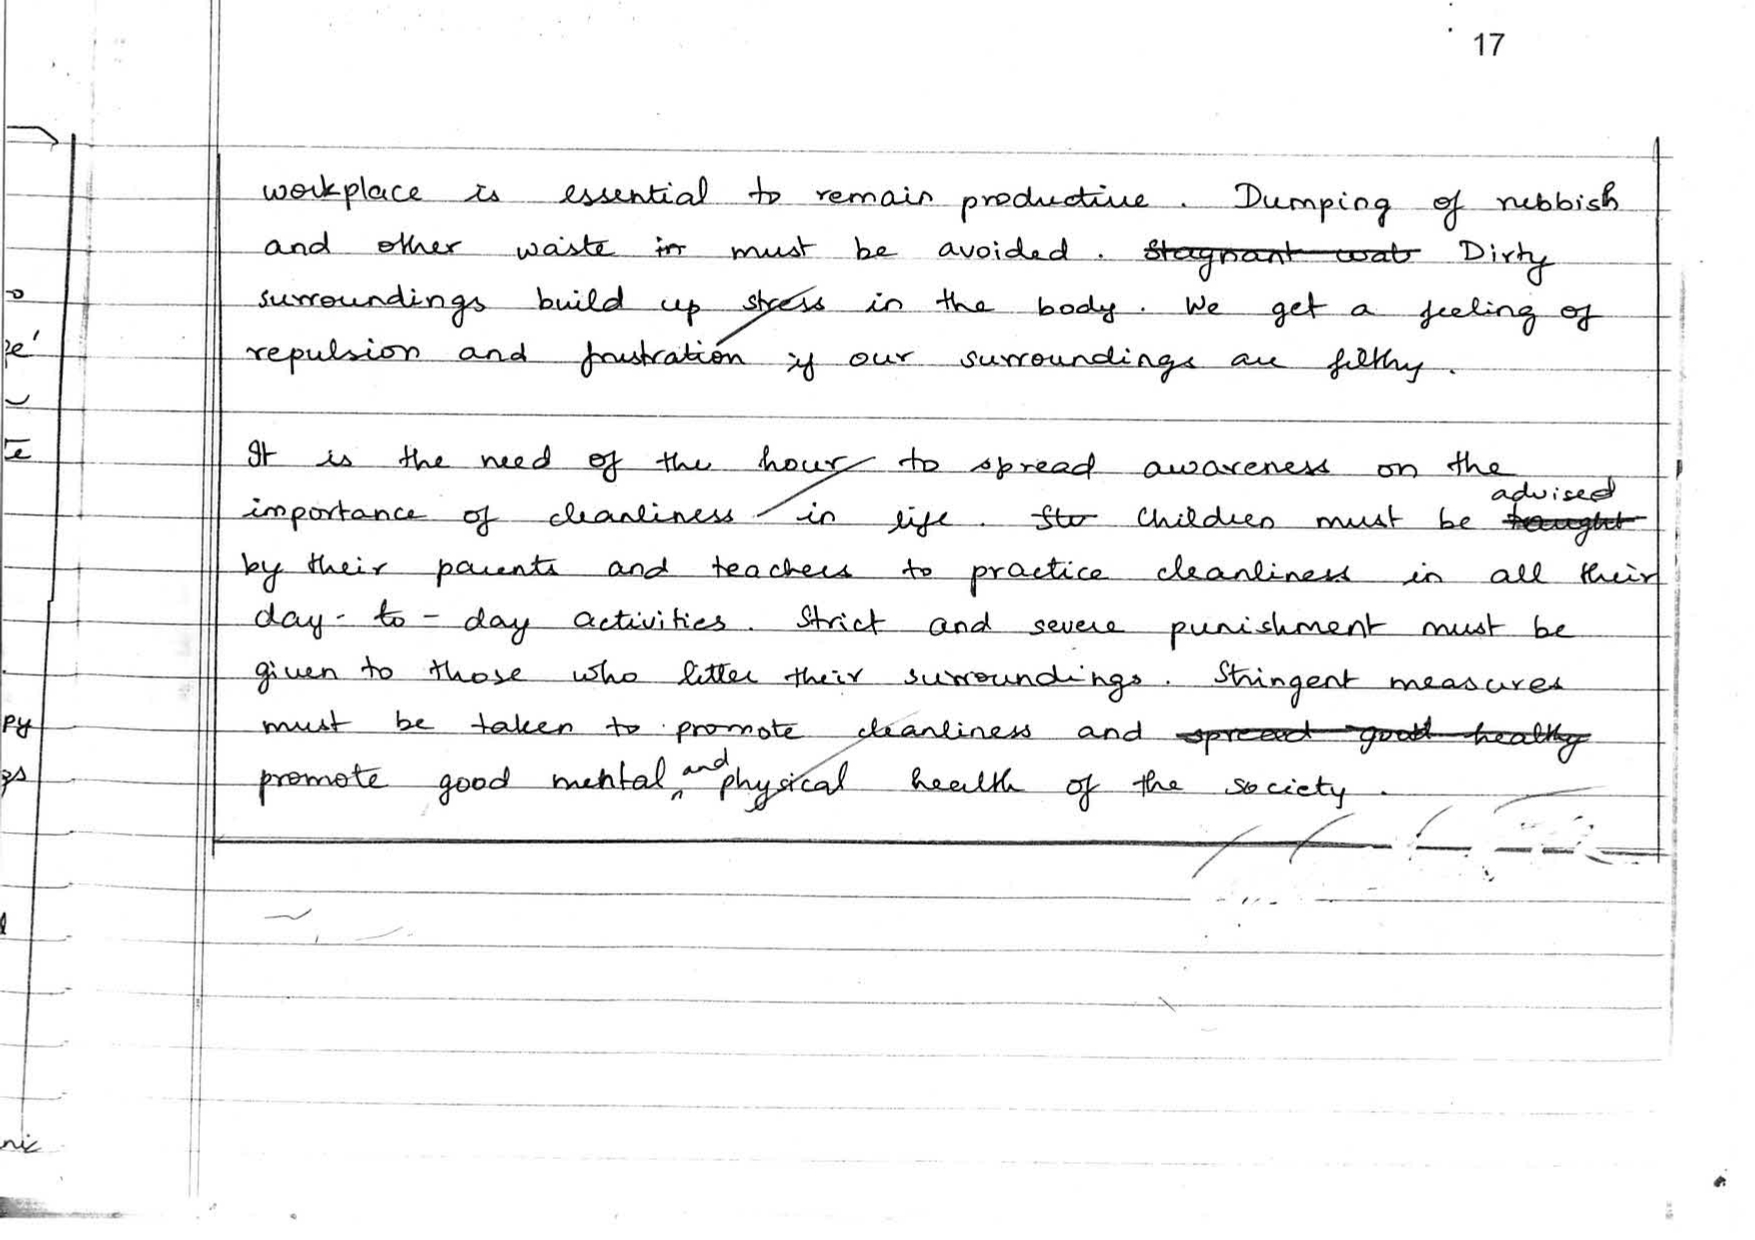 17
workplace is essential to remain productive. Dumping of rubbish
and other waste in must be avoided. Stagnant wat Dirty
surroundings build up stress in the body. We get a feeling of
repulsion and frustration if our surroundings are filthy.
It is the need of the hour to spread awareness on the
importance of cleanliness in life. Sto Children must be taught advised
by their parents and teachers to practice cleanliness in all their
day-to-day activities. Strict and severe punishment must be
given to those who litter their surroundings. Stringent measures
must be taken to promote cleanliness and spread good healthy
promote good mental and physical health of the society.